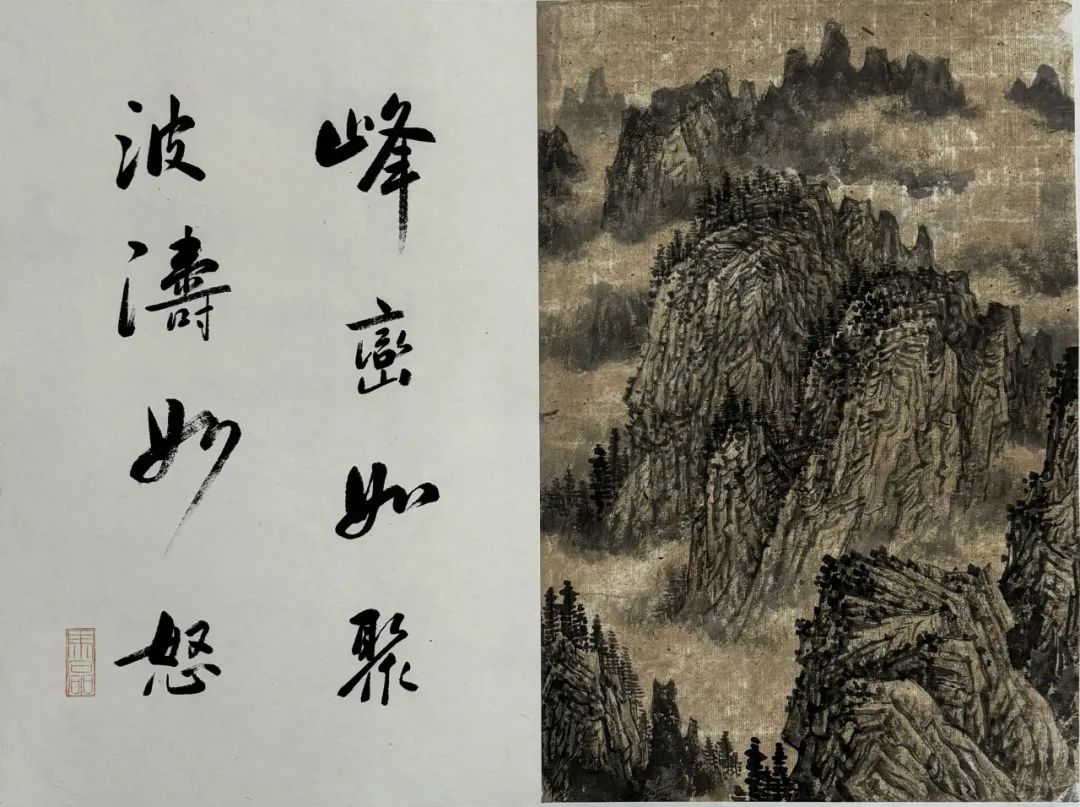 峰巒如聚
波濤如怒